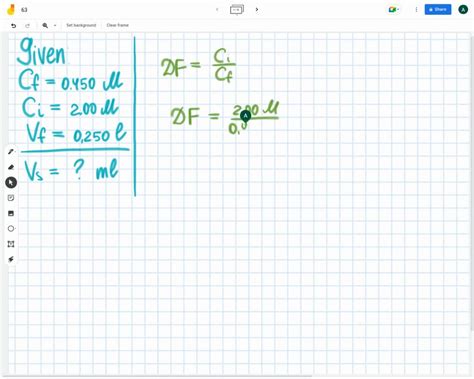 63
Share
A
Set background
Clear frame
given
Cf = 0.450 M
Ci = 2.00 M
Vf = 0,250 l
Vs = ? ml
DF = Ci / Cf
DF = 2.00 M
0,
A